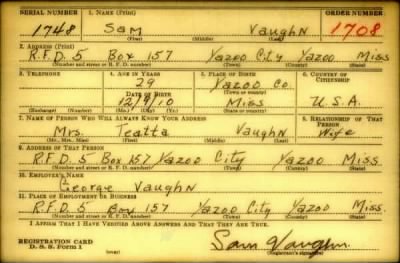 SERIAL NUMBER 1. NAME (Print) ORDER NUMBER
1748 Sam Vaughn 1708
(First) (Middle) (Last)
2. ADDRESS (Print)
R.F.D. 5 Box 157 Yazoo City Yazoo Miss
(Number and street or R. F. D. number) (Town) (County) (State)
3. TELEPHONE 4. AGE IN YEARS 5. PLACE OF BIRTH 6. COUNTRY OF CITIZENSHIP
29 Yazoo Co.
DATE OF BIRTH (Town or county)
12/9/10 Miss U.S.A.
(Exchange) (Number) (Mo.) (Day) (Yr.) (State or country)
7. NAME OF PERSON WHO WILL ALWAYS KNOW YOUR ADDRESS 8. RELATIONSHIP OF THAT PERSON
Mrs. Teatta Vaughn Wife
(Mr., Mrs., Miss) (First) (Middle) (Last)
9. ADDRESS OF THAT PERSON
R.F.D. 5 Box 157 Yazoo City Yazoo Miss.
(Number and street or R. F. D. number) (Town) (County) (State)
10. EMPLOYER'S NAME
George Vaughn
11. PLACE OF EMPLOYMENT OR BUSINESS
R.F.D. 5 Box 157 Yazoo City Yazoo Miss.
(Number and street or R. F. D. number) (Town) (County) (State)
I AFFIRM THAT I HAVE VERIFIED ABOVE ANSWERS AND THAT THEY ARE TRUE.
REGISTRATION CARD
D. S. S. Form 1 (over) Sam Vaughn
(Registrant's signature)